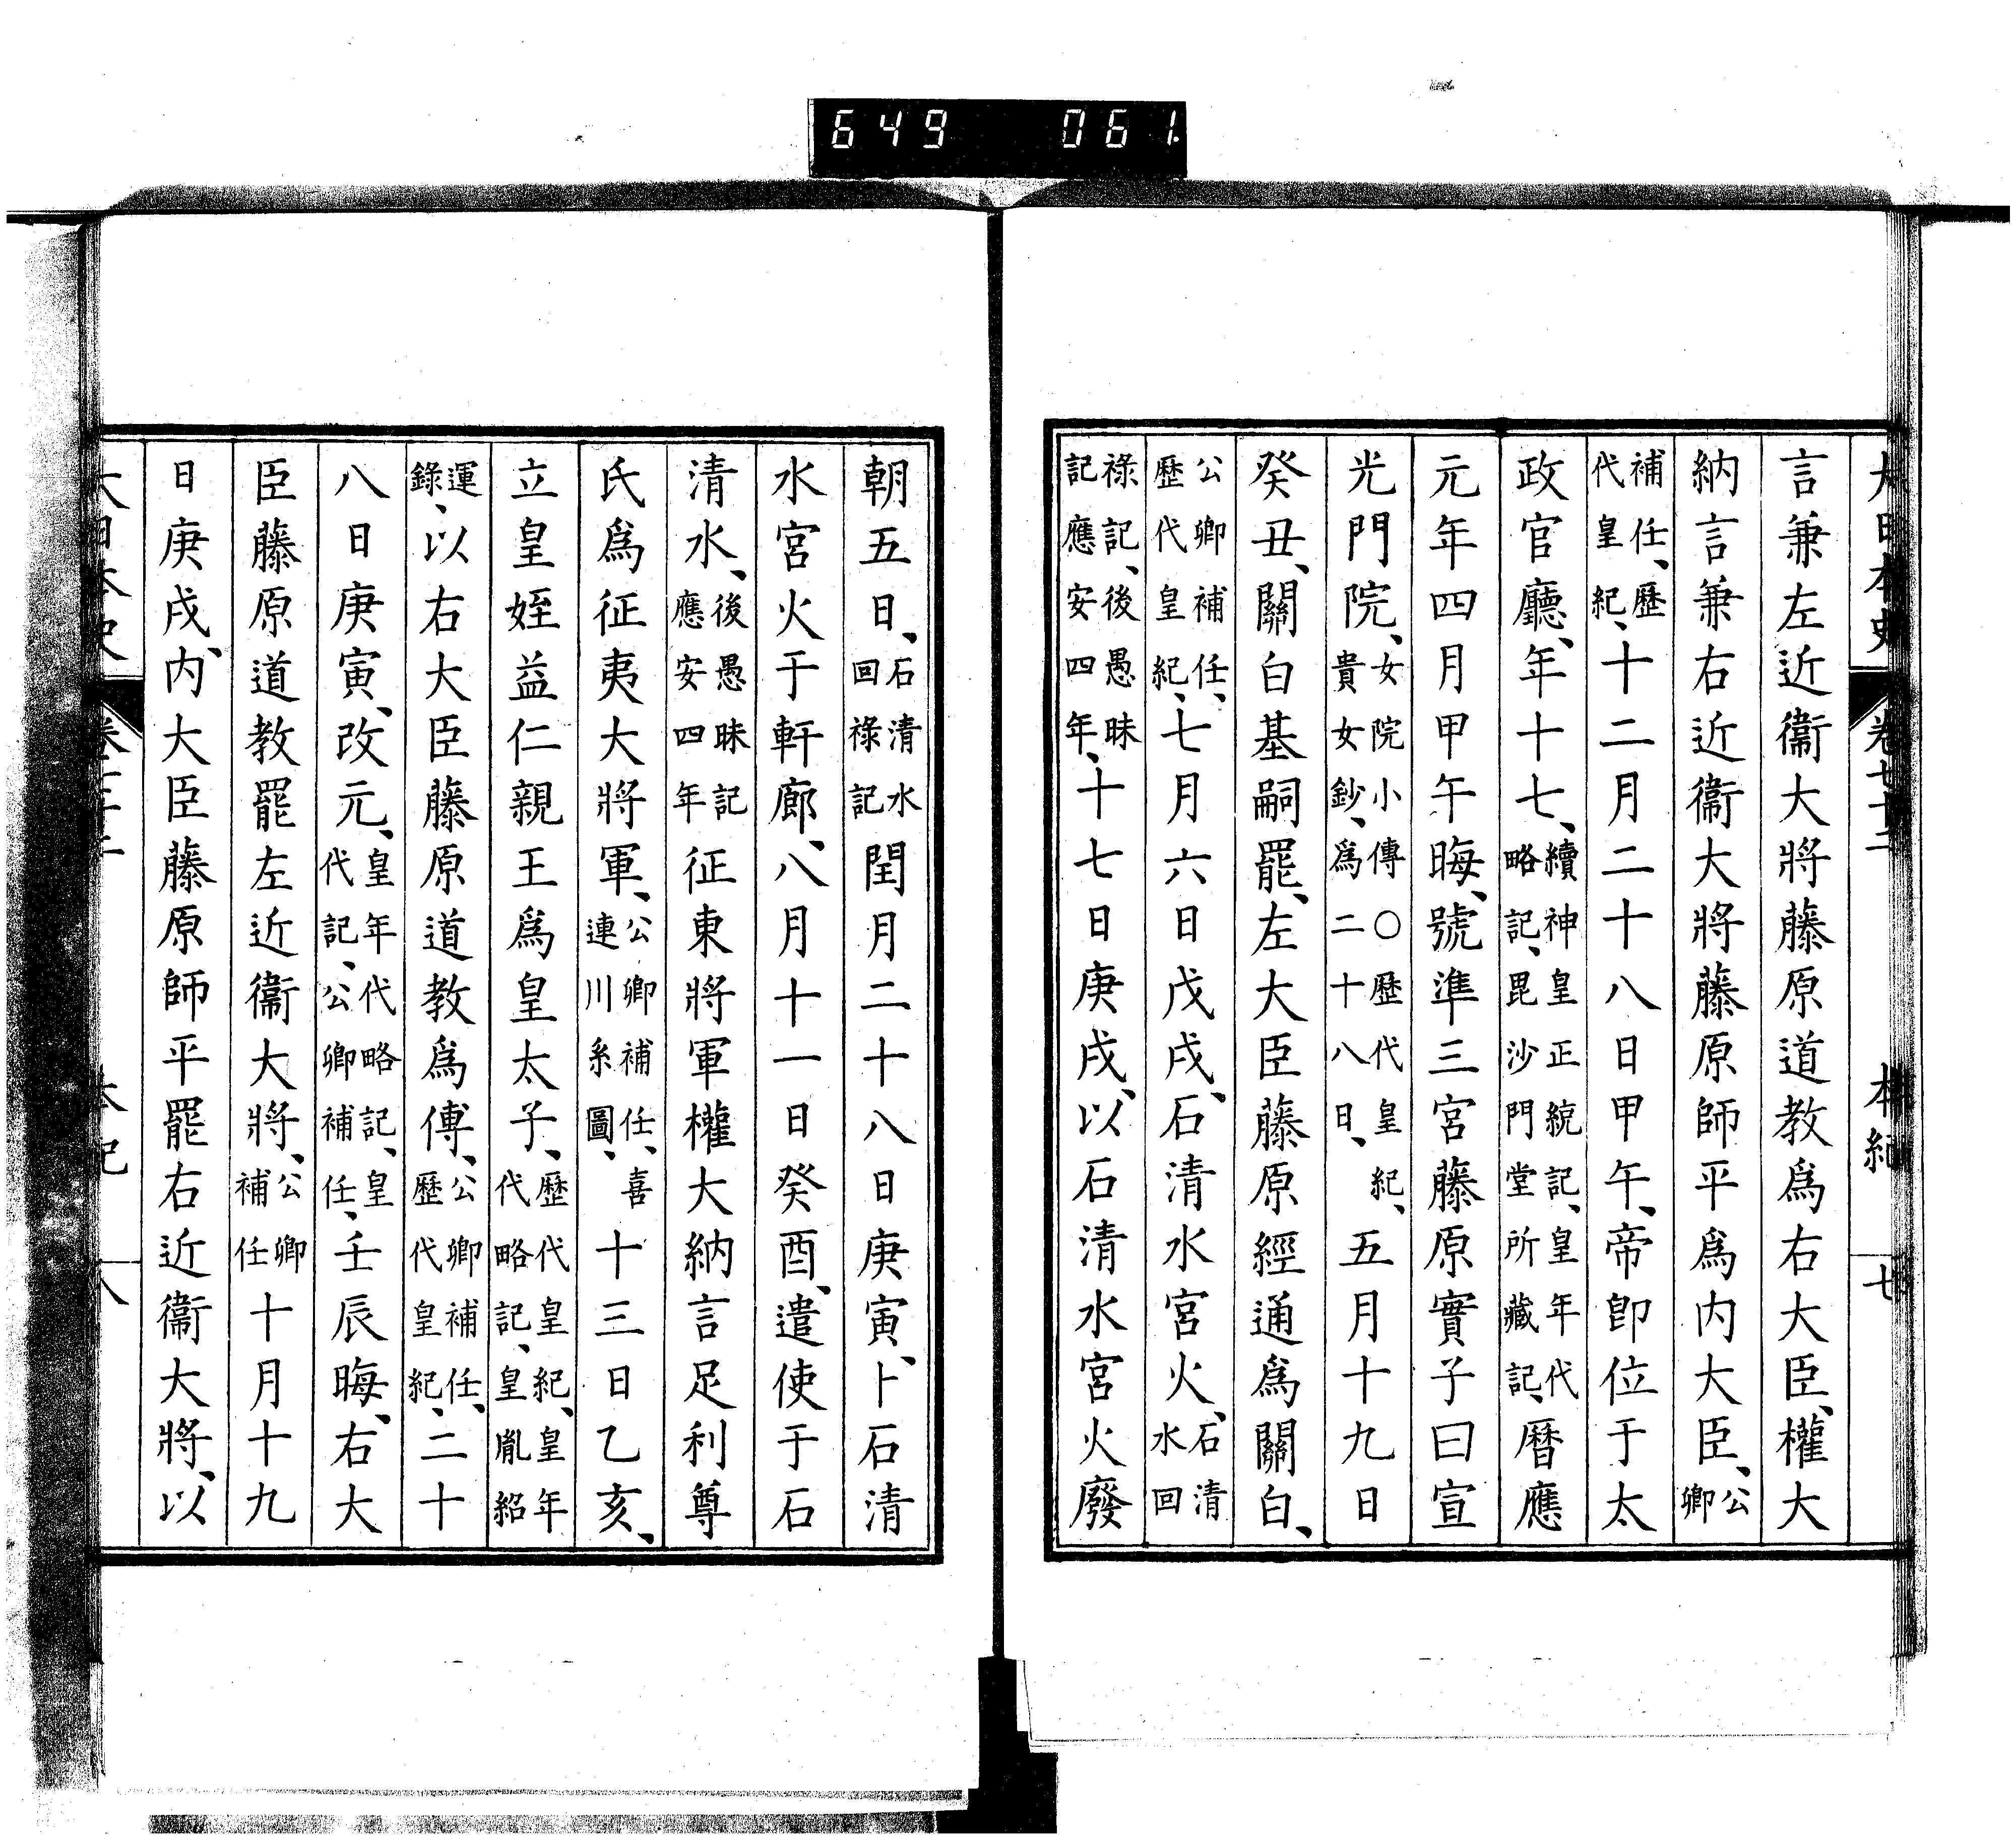 649 061
大日本史 卷七十二 本紀 七
言兼左近衞大將藤原道教爲右大臣、權大
納言兼右近衞大將藤原師平爲内大臣、公卿
補任、歷代皇紀、十二月二十八日甲午、帝卽位于太
政官廳、年十七、續神皇正統記、皇年代略記、毘沙門堂所藏記、曆應
元年四月甲午晦、號準三宮藤原實子曰宣
光門院、女院小傳〇歷代皇紀、貴女鈔、爲二十八日、五月十九日
癸丑、關白基嗣罷、左大臣藤原經通爲關白、
公卿補任、歷代皇紀、七月六日戊戌、石清水宮火、石清水回
祿記、後愚昧記應安四年、十七日庚戌、以石清水宮火廢
朝五日、石清水回祿記閏月二十八日庚寅、卜石清
水宮火于軒廊、八月十一日癸酉、遣使于石
清水、後愚昧記應安四年征東將軍權大納言足利尊
氏爲征夷大將軍、公卿補任、喜連川系圖、十三日乙亥、
立皇姪益仁親王爲皇太子、歷代皇紀、皇年代略記、皇胤紹
運錄、以右大臣藤原道教爲傅、公卿補任、歷代皇紀、二十
八日庚寅、改元、皇年代略記、皇代記、公卿補任、壬辰晦、右大
臣藤原道教罷左近衞大將、公卿補任十月十九
日庚戌、内大臣藤原師平罷右近衞大將、以